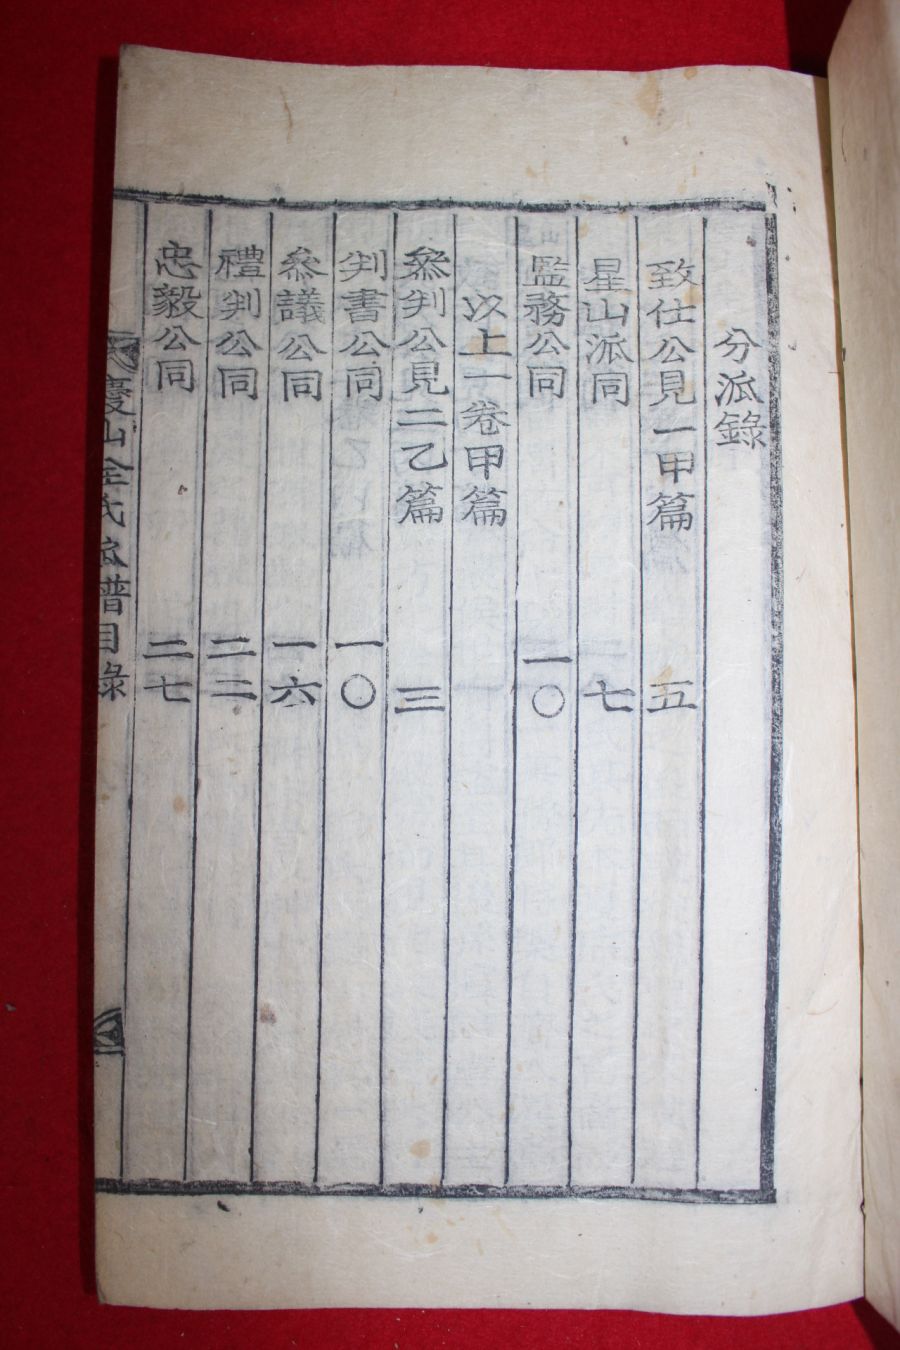 分派錄
致仕公見一甲篇 五
星山派同 七
監務公同 一〇
以上一卷甲篇
參判公見二乙篇 三
判書公同 一〇
參議公同 一六
禮判公同 二二
忠毅公同 二七
慶山全氏派譜目錄